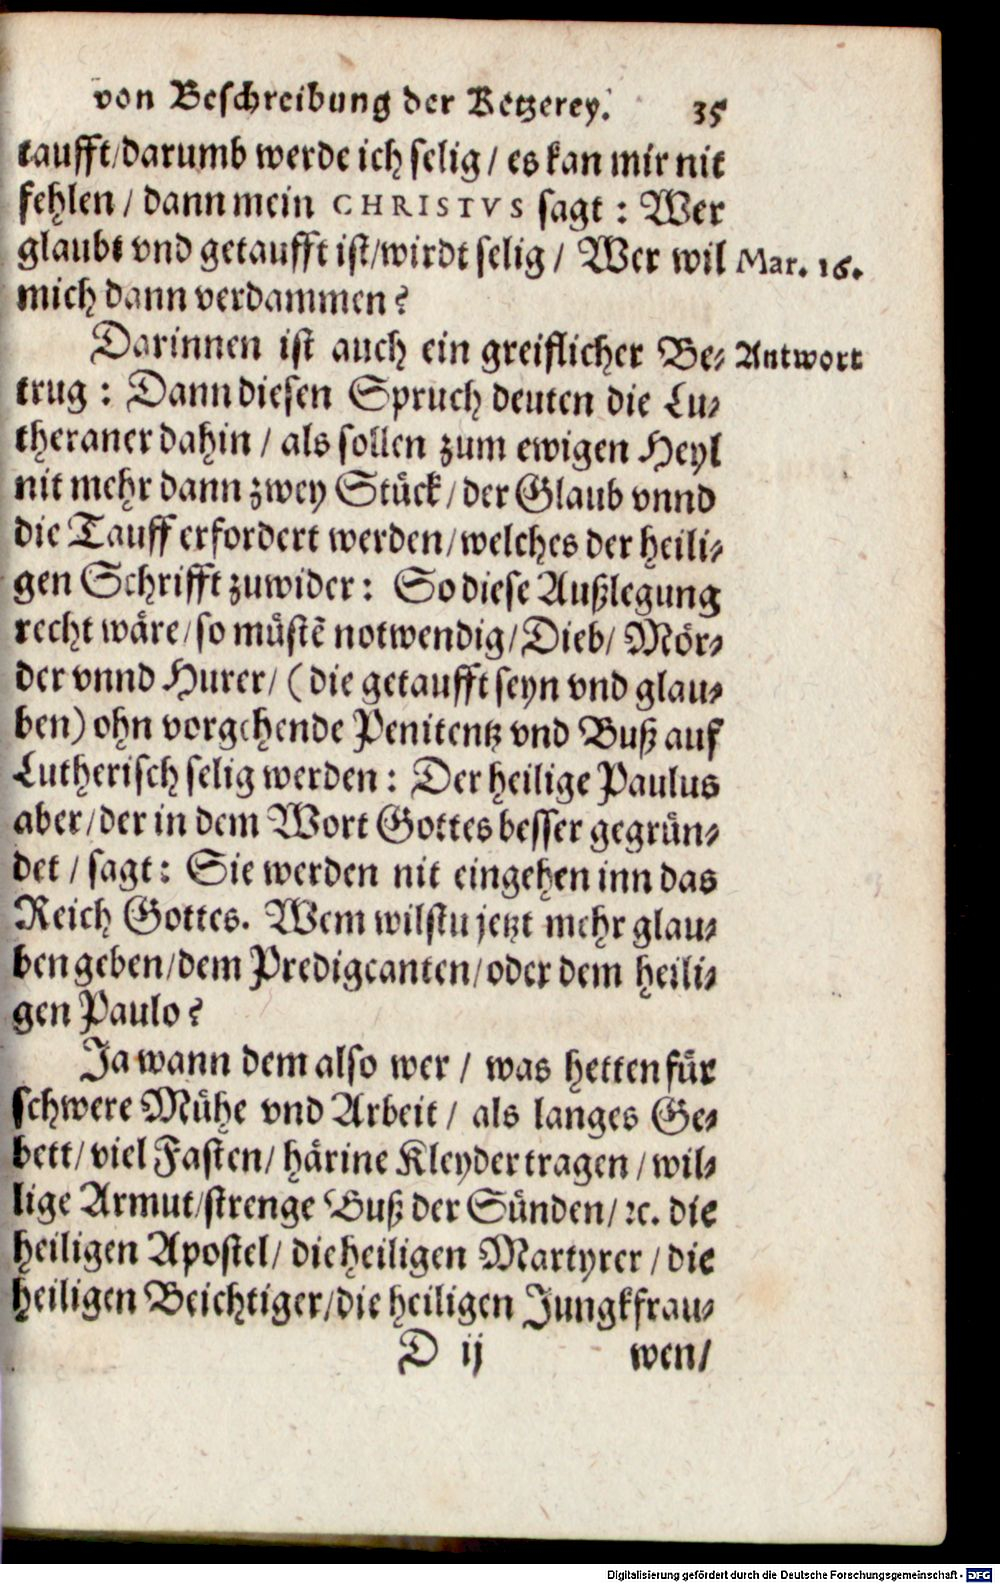 von Beschreibung der Ketzerey. 35
taufft/darumb werde ich selig / es kan mir nit
fehlen / dann mein CHRISTVS sagt : Wer
glaubt vnd getaufft ist/wirdt selig / Wer wil Mar. 16.
mich dann verdammen?
Darinnen ist auch ein greiflicher Be- Antwort
trug : Dann diesen Spruch deuten die Lu-
theraner dahin / als sollen zum ewigen Heyl
nit mehr dann zwey Stück / der Glaub vnnd
die Tauff erfordert werden/welches der heili-
gen Schrifft zuwider : So diese Außlegung
recht wäre/so müstē notwendig/Dieb/ Mör-
der vnnd Hurer/ (die getaufft seyn vnd glau-
ben) ohn vorgehende Penitentz vnd Buß auf
Lutherisch selig werden : Der heilige Paulus
aber/der in dem Wort Gottes besser gegrün-
det / sagt : Sie werden nit eingehen inn das
Reich Gottes. Wem wilstu jetzt mehr glau-
ben geben/dem Predigcanten/oder dem heili-
gen Paulo?
Ja wann dem also wer / was hetten für
schwere Mühe vnd Arbeit / als langes Ge-
bett/ viel Fasten/ härine Kleyder tragen / wil-
lige Armut/strenge Buß der Sünden/ ꝛc. die
heiligen Apostel/ die heiligen Martyrer / die
heiligen Beichtiger/die heiligen Jungkfrau-
D ij wen/
Digitalisierung gefördert durch die Deutsche Forschungsgemeinschaft - DFG